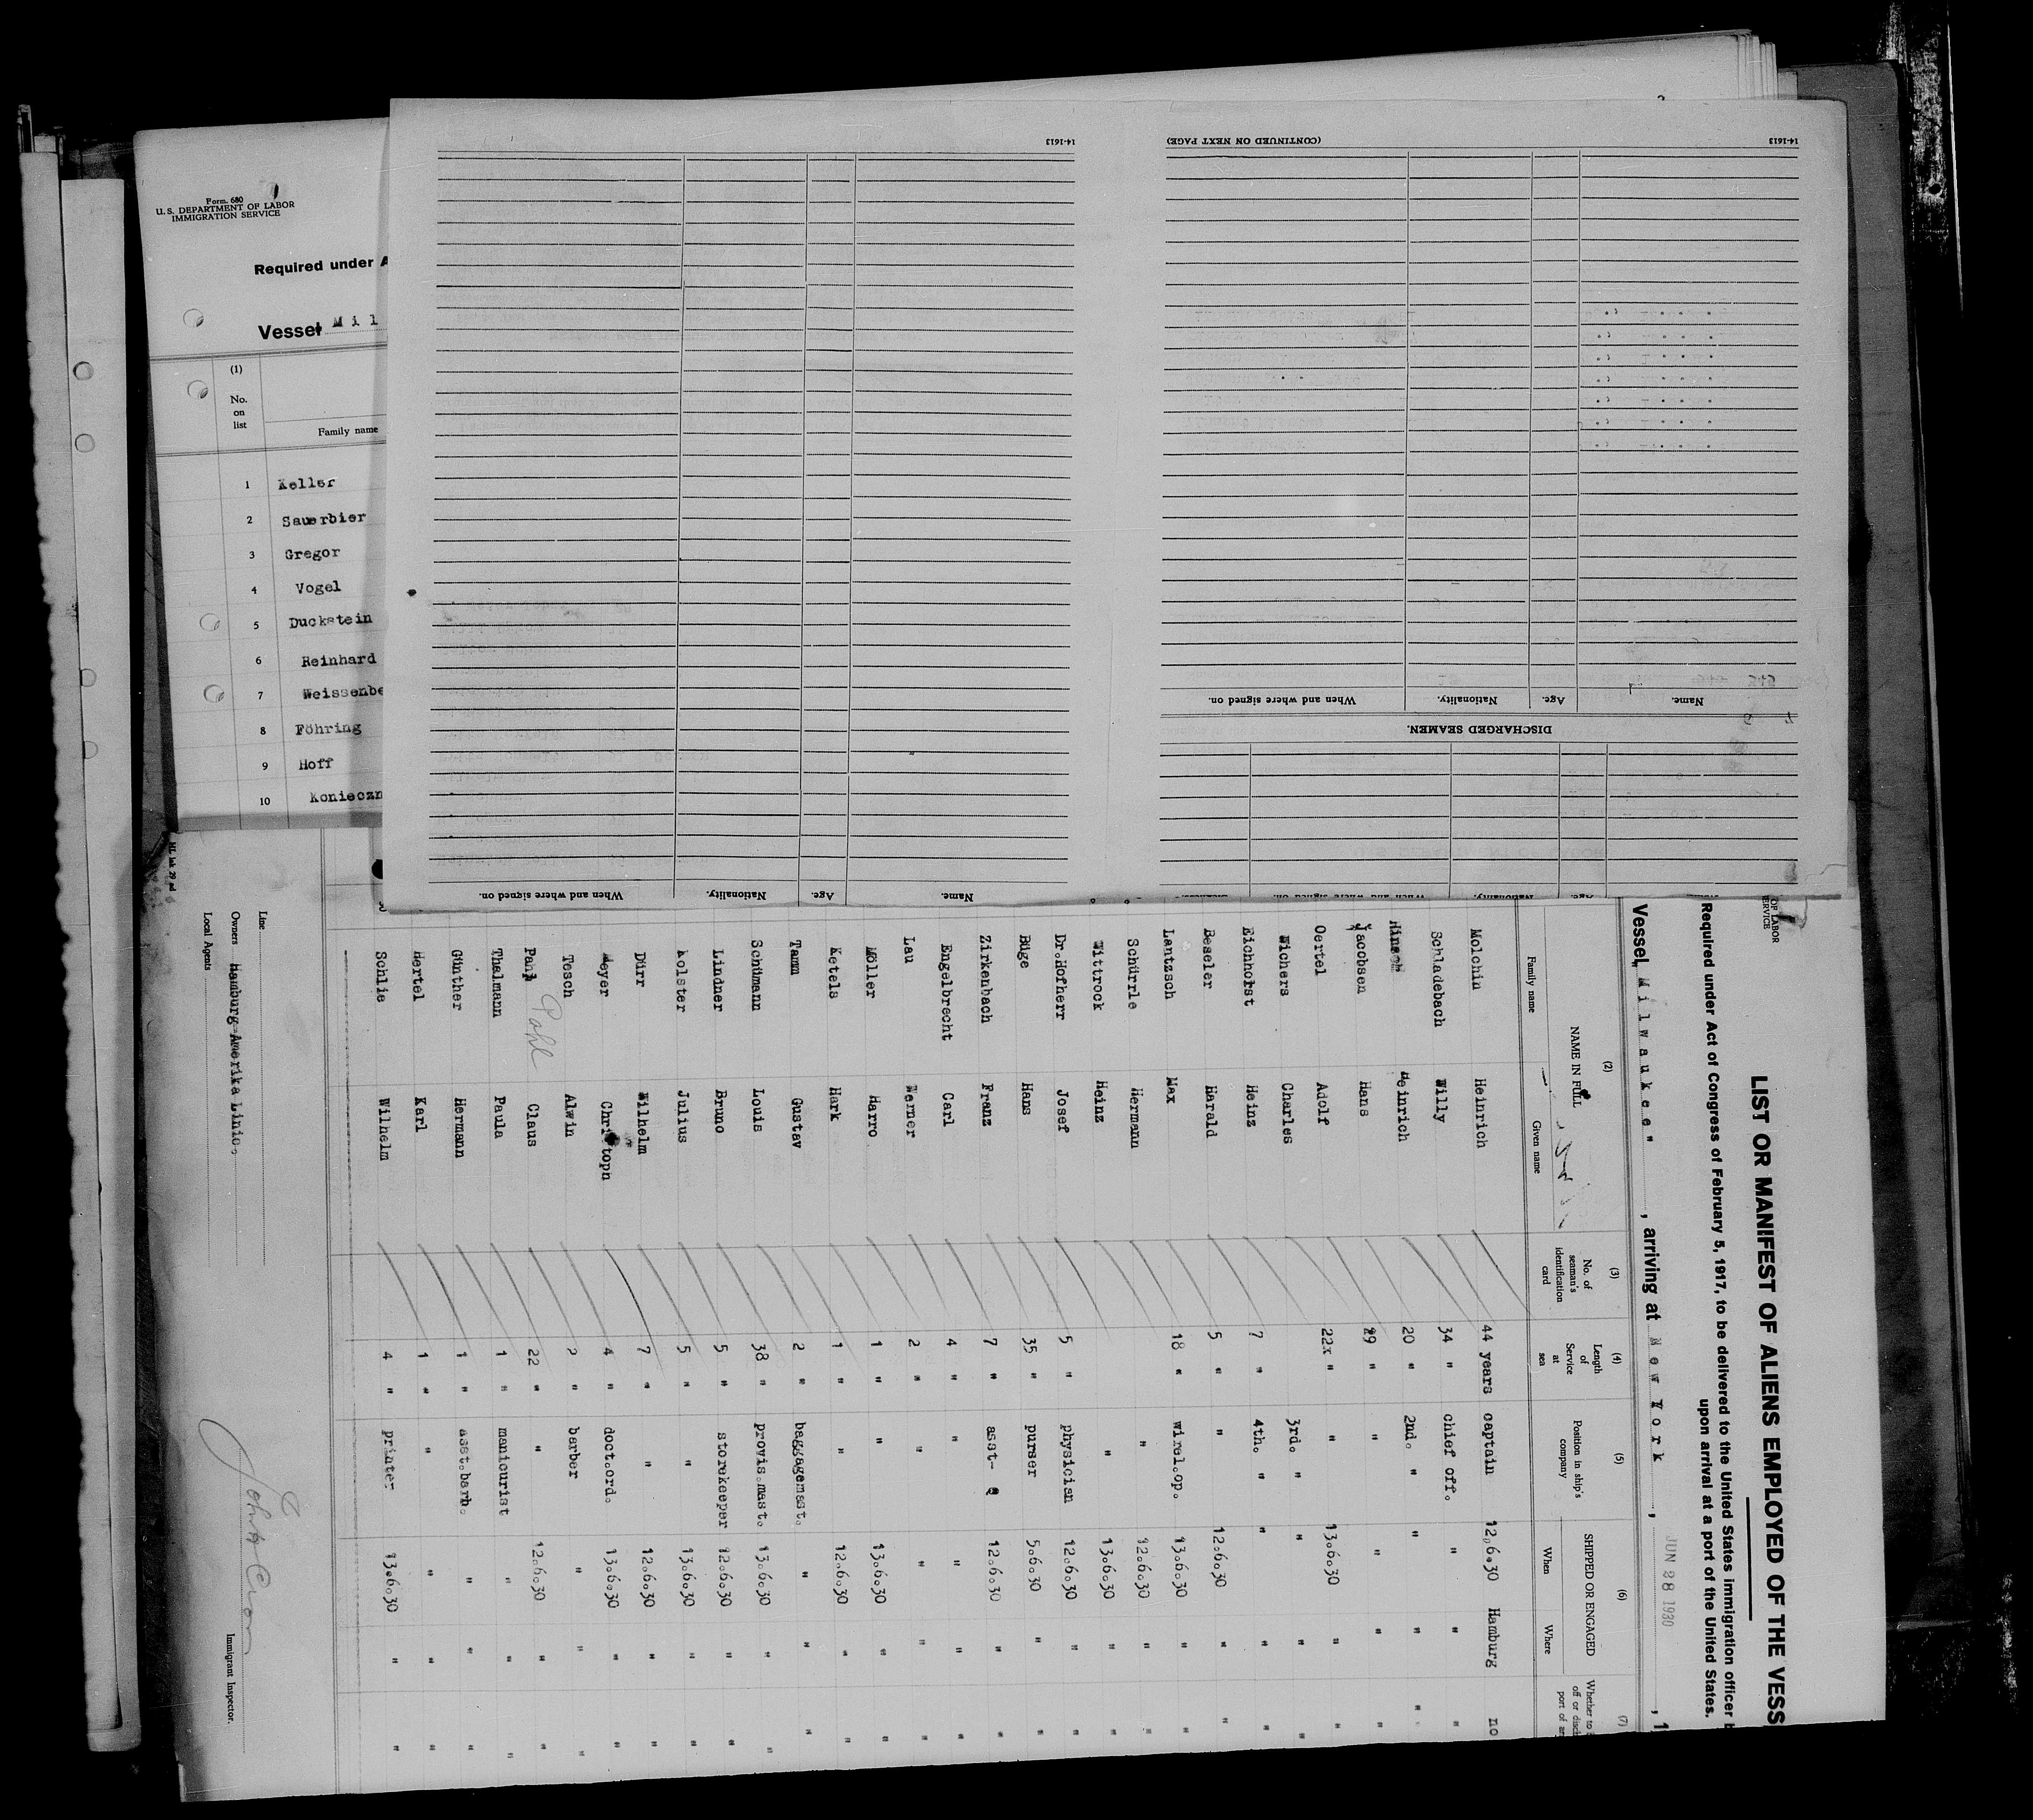 Form 680
U. S. DEPARTMENT OF LABOR
IMMIGRATION SERVICE
Required under
Vessel Mil
(1)
No.
on
list
Family name
1 Keller
2 Sauerbier
3 Gregor
4 Vogel
5 Duckstein
6 Reinhard
7 Weissenbe
8 Föhring
9 Hoff
10 Konieczn
14-1613
(CONTINUED ON NEXT PAGE)
14-1613
Name. Age. Nationality. When and where signed on.
DISCHARGED SEAMEN.
Name. Age. Nationality. When and where signed on.
OF LABOR
SERVICE
LIST OR MANIFEST OF ALIENS EMPLOYED OF THE VESS
Required under Act of Congress of February 5, 1917, to be delivered to the United States immigration officer b
upon arrival at a port of the United States.
Vessel, Milwaukee", arriving at New York, JUN 28 1930, 1
(2) (3) (4) (5) (6) (7)
NAME IN FULL
Family name Given name
No. of seaman's identification card
Length of Service at sea
Position in ship's company
SHIPPED OR ENGAGED
When Where
Molchin Heinrich 44 years captain 12.6.30 Hamburg no
Schladebach Willy 34 " chief off. " " "
Hinsch Heinrich 20 " 2nd. " " " "
Jacobsen Hans 29 " " " " "
Oertel Adolf 22x " " 13.6.30 " "
Wichers Charles 3rd. " " " "
Eichhorst Heinz 7 " 4th. " " " "
Beseler Harald 5 " " 12.6.30 " "
Lantzsch Max 18 " wirel.op. 13.6.30 " "
Schürrle Hermann " 12.6.30 " "
Wittrock Heinz " 13.6.30 " "
Dr.Hofherr Josef 5 " physician 12.6.30 " "
Büge Hans 35 " purser 5.6.30 " "
Zirkenbach Franz 7 " asst- " 12.6.30 " "
Engelbrecht Carl 4 " " " " "
Lau Werner 2 " " " " "
Möller Harro 1 " " 13.6.30 " "
Ketels Hark 1 " " 12.6.30 " "
Tamm Gustav 2 " baggagemast. " " "
Schümann Louis 38 " provis.mast. 13.6.30 " "
Lindner Bruno 5 " storekeeper 12.6.30 " "
Kolster Julius 5 " " 13.6.30 " "
Dürr Wilhelm 7 " " 12.6.30 " "
Meyer Christoph 4 " doct.ord. 13.6.30 " "
Tesch Alwin 2 " barber " " "
Pahl Pahl Claus 22 " " 12.6.30 " "
Thalmann Paula 1 " manicurist " " "
Günther Hermann 1 " asst.barb. " " "
Hertel Karl 1 " " " " "
Schlie Wilhelm 4 " printer 13.6.30 " "
Line
Owners Hamburg-Amerika Linie.
Local Agents
Immigrant Inspector.